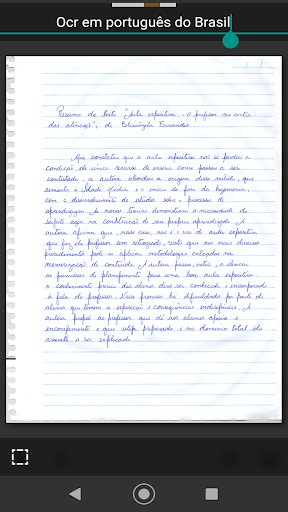 Ocr em português do Brasil
Resumo do texto "Aula expositiva: O professor no centro
das atenções", de Elisângela Fernandes
Após constatar que a aula expositiva não só perdeu a
condição de único recurso de ensino como passou a ser
contestada a autora aborda a origem desse método, que
remonta à Idade Média e o início do fim da hegemonia,
com o desenvolvimento de estudos sobre o processo de
aprendizagem. As novas teorias demonstram a necessidade do
sujeito agir na construção de seu próprio aprendizado. A
autora afirma que, nesse caso, não é o uso de aula expositiva
que faz do professor um retrógrado, visto que nos mais diversos
procedimentos pode se aplicar metodologias calcadas na
memorização de conteúdo. A autora passa, então, a elencar
as premissas do planejamento para uma boa aula expositiva:
o conhecimento prévio dos alunos deve ser conhecido e incorporado
à fala do professor. Nesse processo há dificuldades por parte de
alunos que temem a exposição e consequências indesejáveis. A
autora propõe ao professor que dê aos alunos apoio e
encorajamento e que esteja preparado e no domínio total do
assunto a ser explicado.